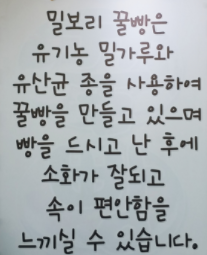 밀보리 꿀빵은
유기농 밀가루와
유산균 종을 사용하여
꿀빵을 만들고 있으며
빵을 드시고 난 후에
소화가 잘되고
속이 편안함을
느끼실 수 있습니다.